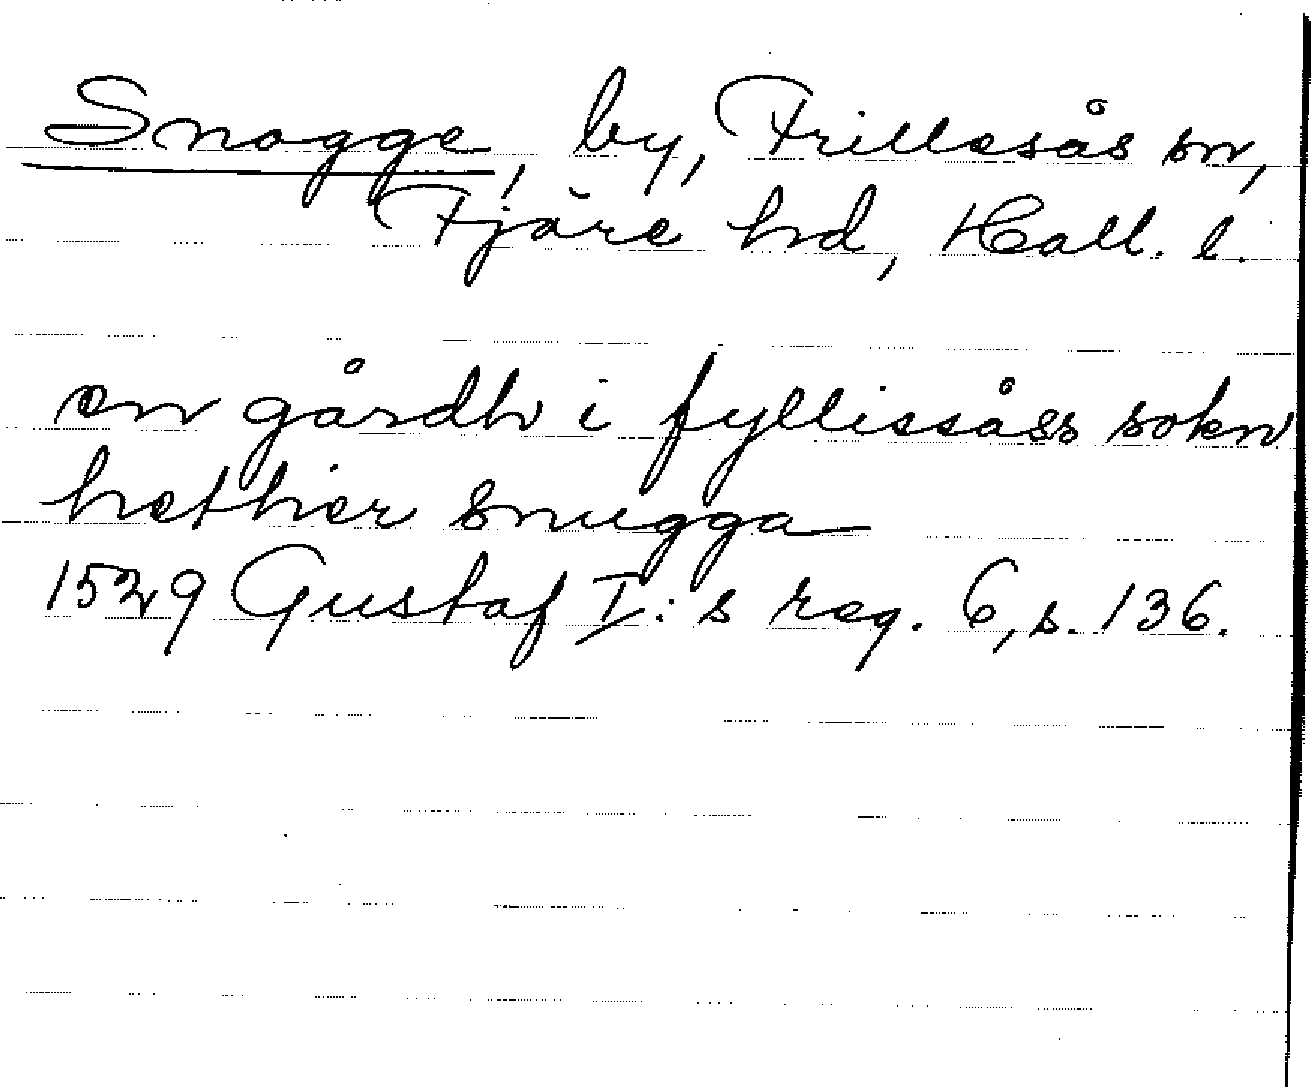 Snogge, by, Frillesås sn,
Fjäre hd, Hall. l.
en gårdh i fyllissåss sokn
hethier snugga
1529 Gustaf I:s reg. 6, s. 136.